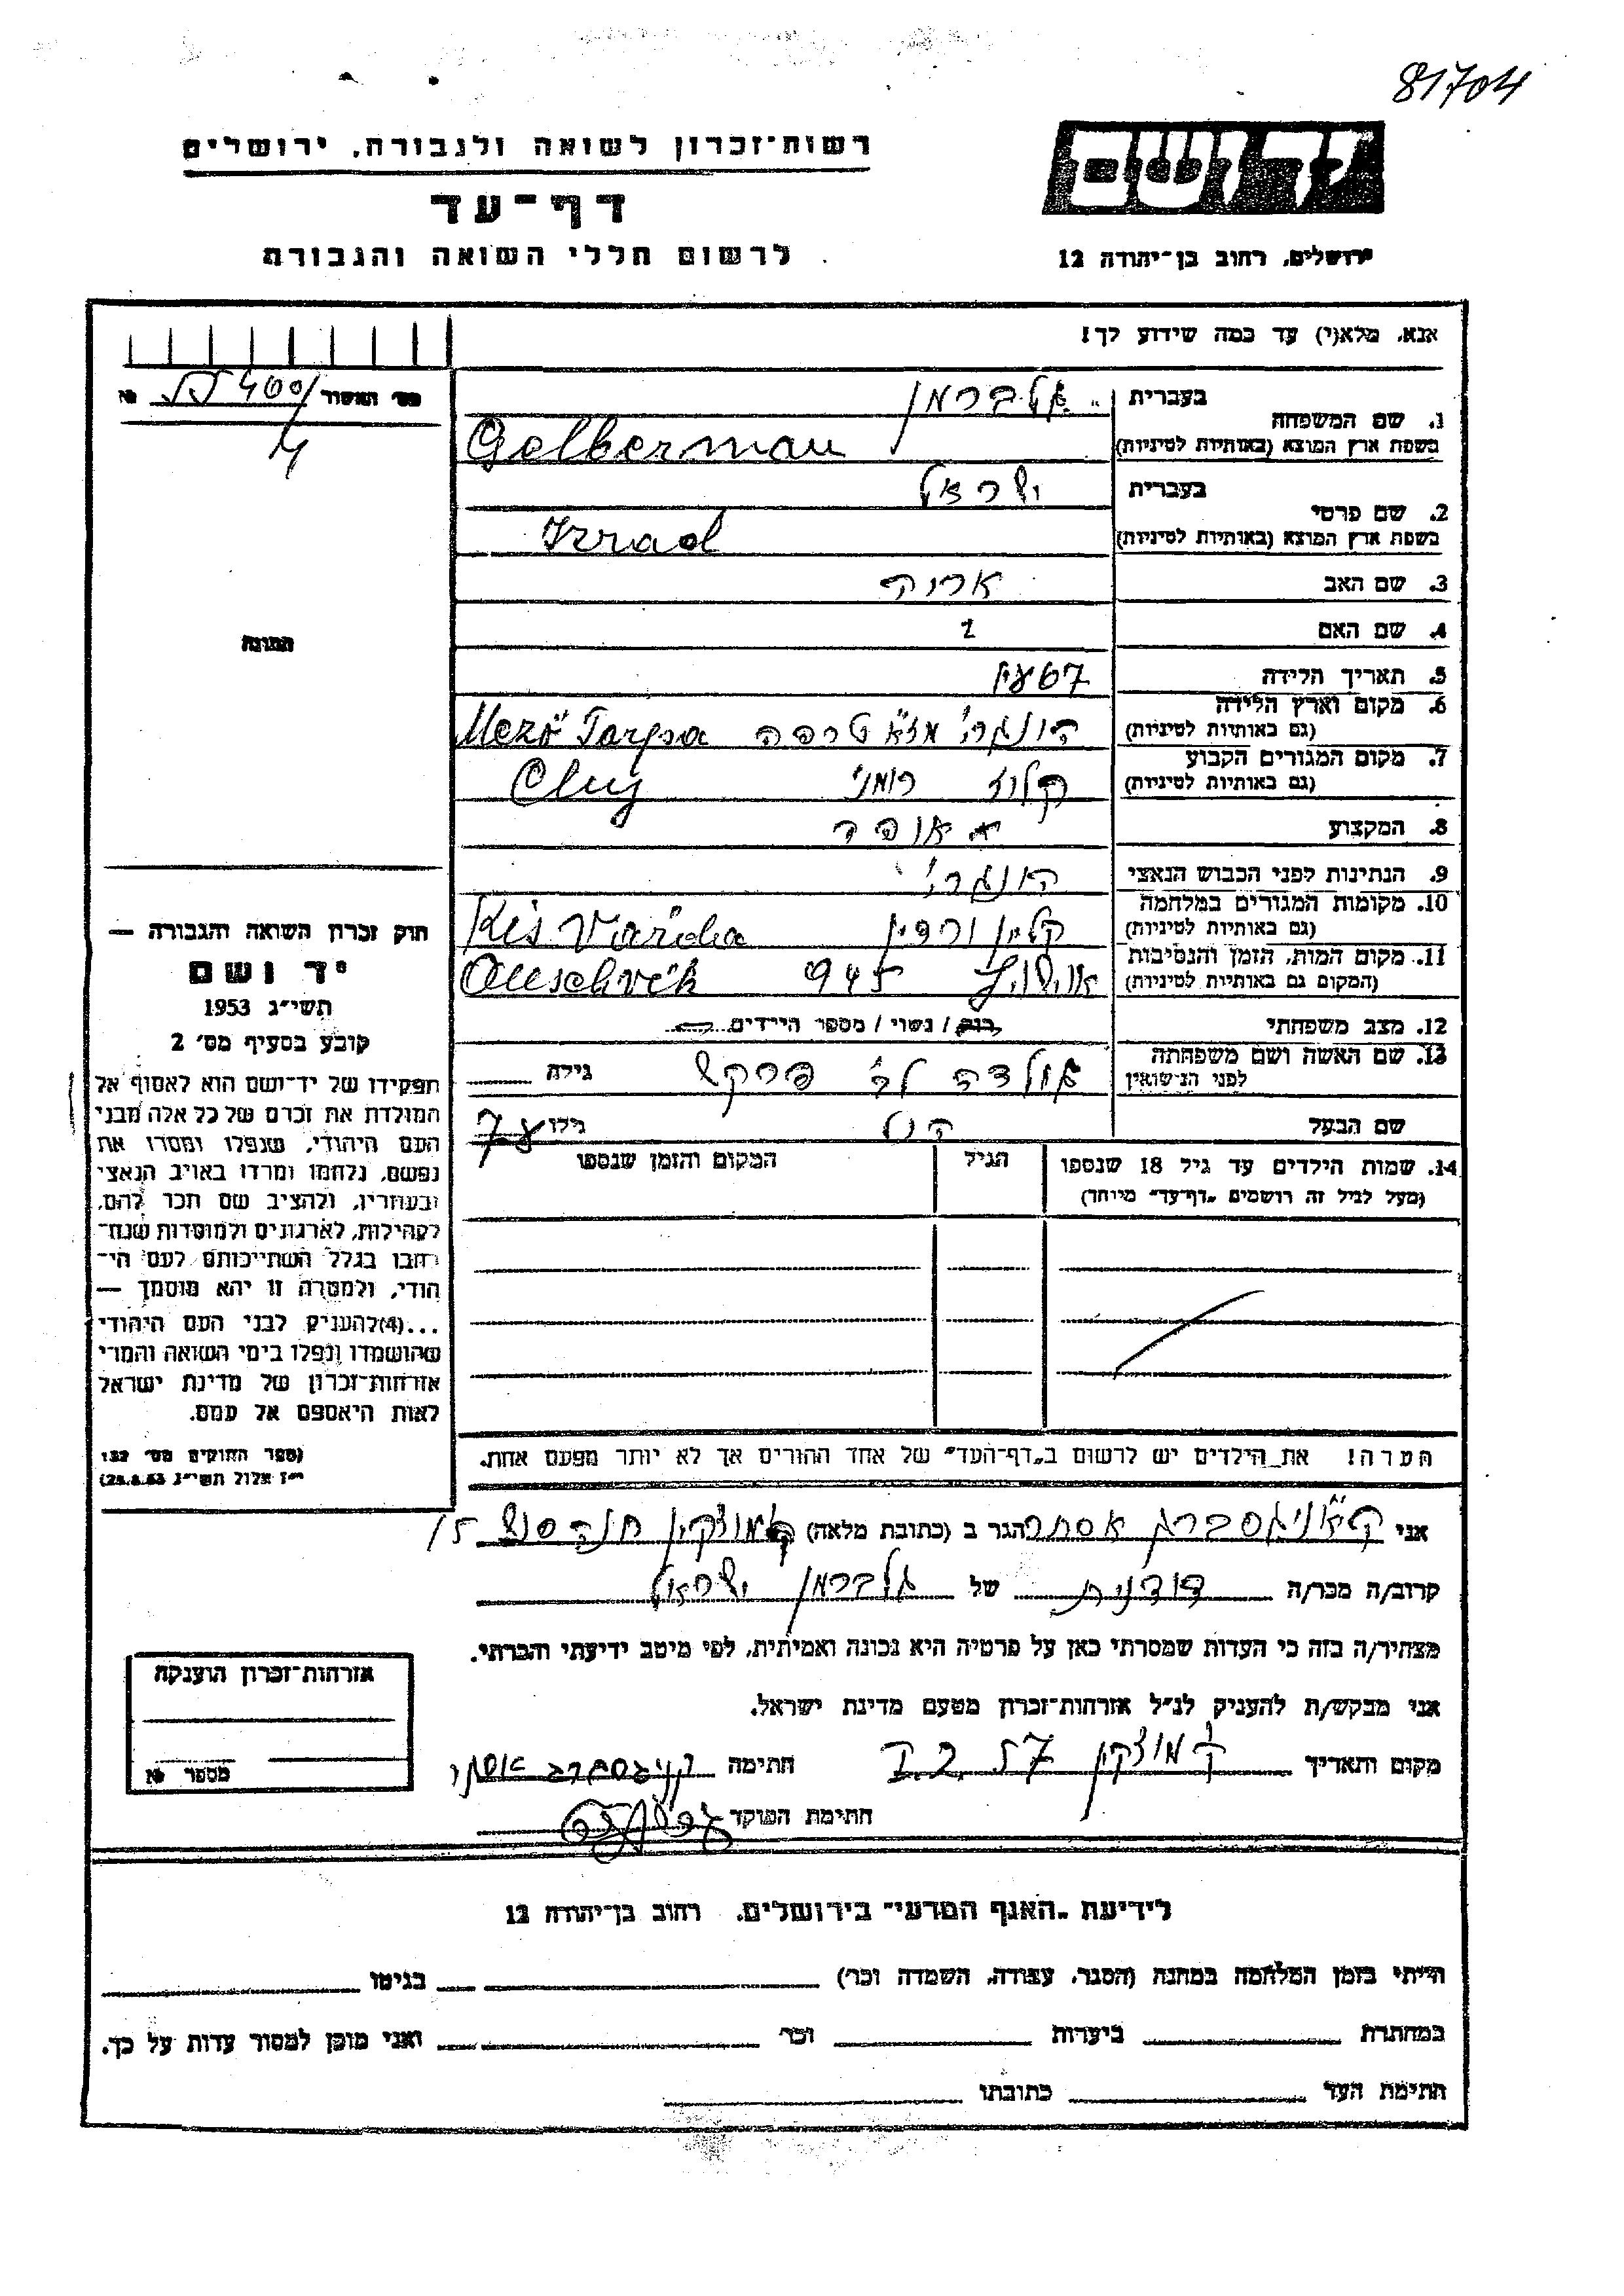 81704
יד ושם
רשות־זכרון לשואה ולגבורה, ירושלים
דף־עד
לרשום חללי השואה והגבורה
ירושלים, רחוב בן־יהודה 12
אנא, מלא(י) עד כמה שידוע לך!
בעברית גלברמן
1. שם המשפחה
בשפת ארץ המוצא (באותיות לטיניות) Gelberman
בעברית ישראל
2. שם פרטי
בשפת ארץ המוצא (באותיות לטיניות) Izrael
3. שם האב
4. שם האם
5. תאריך הלידה
6. מקום וארץ הלידה
(גם באותיות לטיניות) הונגרי Mezö Tarpa
7. מקום המגורים הקבוע
(גם באותיות לטיניות) קלוז רומני Cluj
8. המקצוע
9. הנתינות לפני הכבוש הנאצי הונגרי
10. מקומות המגורים במלחמה
(גם באותיות לטיניות) Kis Várda
11. מקום המות, הזמן והנסיבות
(המקום גם באותיות לטיניות) 945
12. מצב משפחתי רווק / נשוי / מספר הילדים
13. שם האשה ושם משפחתה
לפני הנישואין גילה
שם הבעל גילו 78
14. שמות הילדים עד גיל 18 שנספו
(מעל לגיל זה רושמים „דף־עד” מיוחד)
הגיל
המקום והזמן שנספו
הערה! את הילדים יש לרשום ב„דף־העד” של אחד ההורים אך לא יותר מפעם אחת.
מס' המאסר № 400
התמונה
חוק זכרון השואה והגבורה —
יד ושם
תשי״ג 1953
קובע בסעיף מס' 2
תפקידו של יד־ושם הוא לאסוף אל
המולדת את זכרם של כל אלה מבני
העם היהודי, שנפלו ומסרו את
נפשם, נלחמו ומרדו באויב הנאצי
ובעוזריו, ולהציב שם וזכר להם,
לקהילות, לארגונים ולמוסדות שנח־
רבו בגלל השתייכותם לעם הי־
הודי, ולמטרה זו יהא מוסמך —
...(4)להעניק לבני העם היהודי
שהושמדו ונפלו בימי השואה והמרי
אזרחות־זכרון של מדינת ישראל
לאות היאספם אל עמם.
(ספר החוקים מס' 132
י״ז אלול תשי״ג 28.8.53)
אני אסתר הגר ב (כתובת מלאה) ק. מוצקין 15
קרוב/ה מכר/ה דודנית של גלברמן ישראל
מצהיר/ה בזה כי העדות שמסרתי כאן על פרטיה היא נכונה ואמיתית, לפי מיטב ידיעתי והכרתי.
אני מבקש/ת להעניק לנ״ל אזרחות־זכרון מטעם מדינת ישראל.
מקום ותאריך ק. מוצקין חתימה
חתימת הפוקד
אזרחות־זכרון הוענקה
מספר №
לידיעת „האגף המדעי” בירושלים, רחוב בן־יהודה 12
הייתי בזמן המלחמה במחנה (הסגר, עבודה, השמדה וכו') בגיטו
במחתרת ביערות וכו' ואני מוכן למסור עדות על כך.
חתימת העד כתובתו